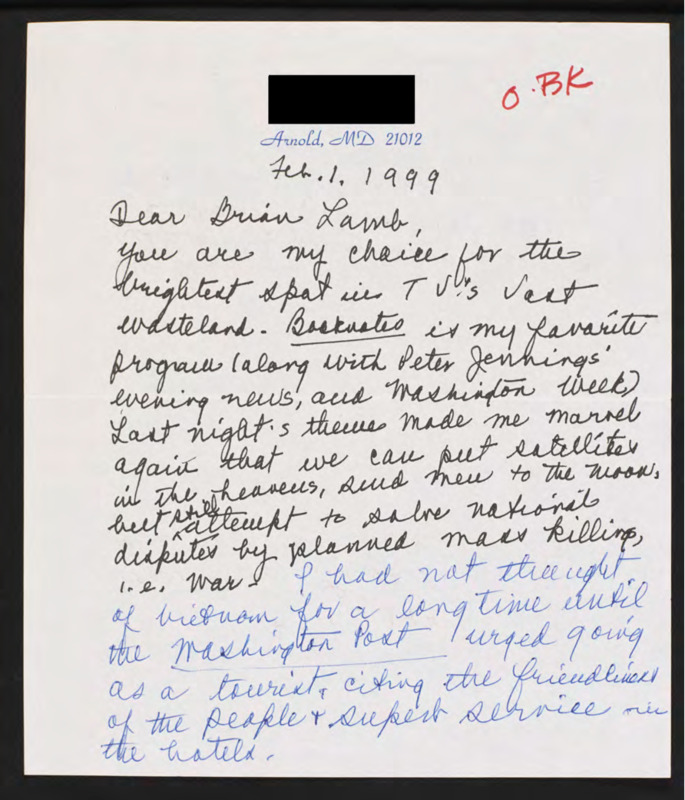 O.BK
Arnold, MD 21012
Feb. 1, 1999
Dear Brian Lamb,
You are my choice for the
brightest spot in TV's vast
wasteland. Booknotes is my favorite
program (along with Peter Jennings'
evening news, and Washington Week)
Last night's theme made me marvel
again that we can put satellites
in the heavens, send men to the moon,
but still attempt to solve national
disputes by planned mass killing,
i.e. war. I had not thought
of Vietnam for a long time until
the Washington Post urged going
as a tourist, citing the friendliness
of the people + superb service in
the hotels.